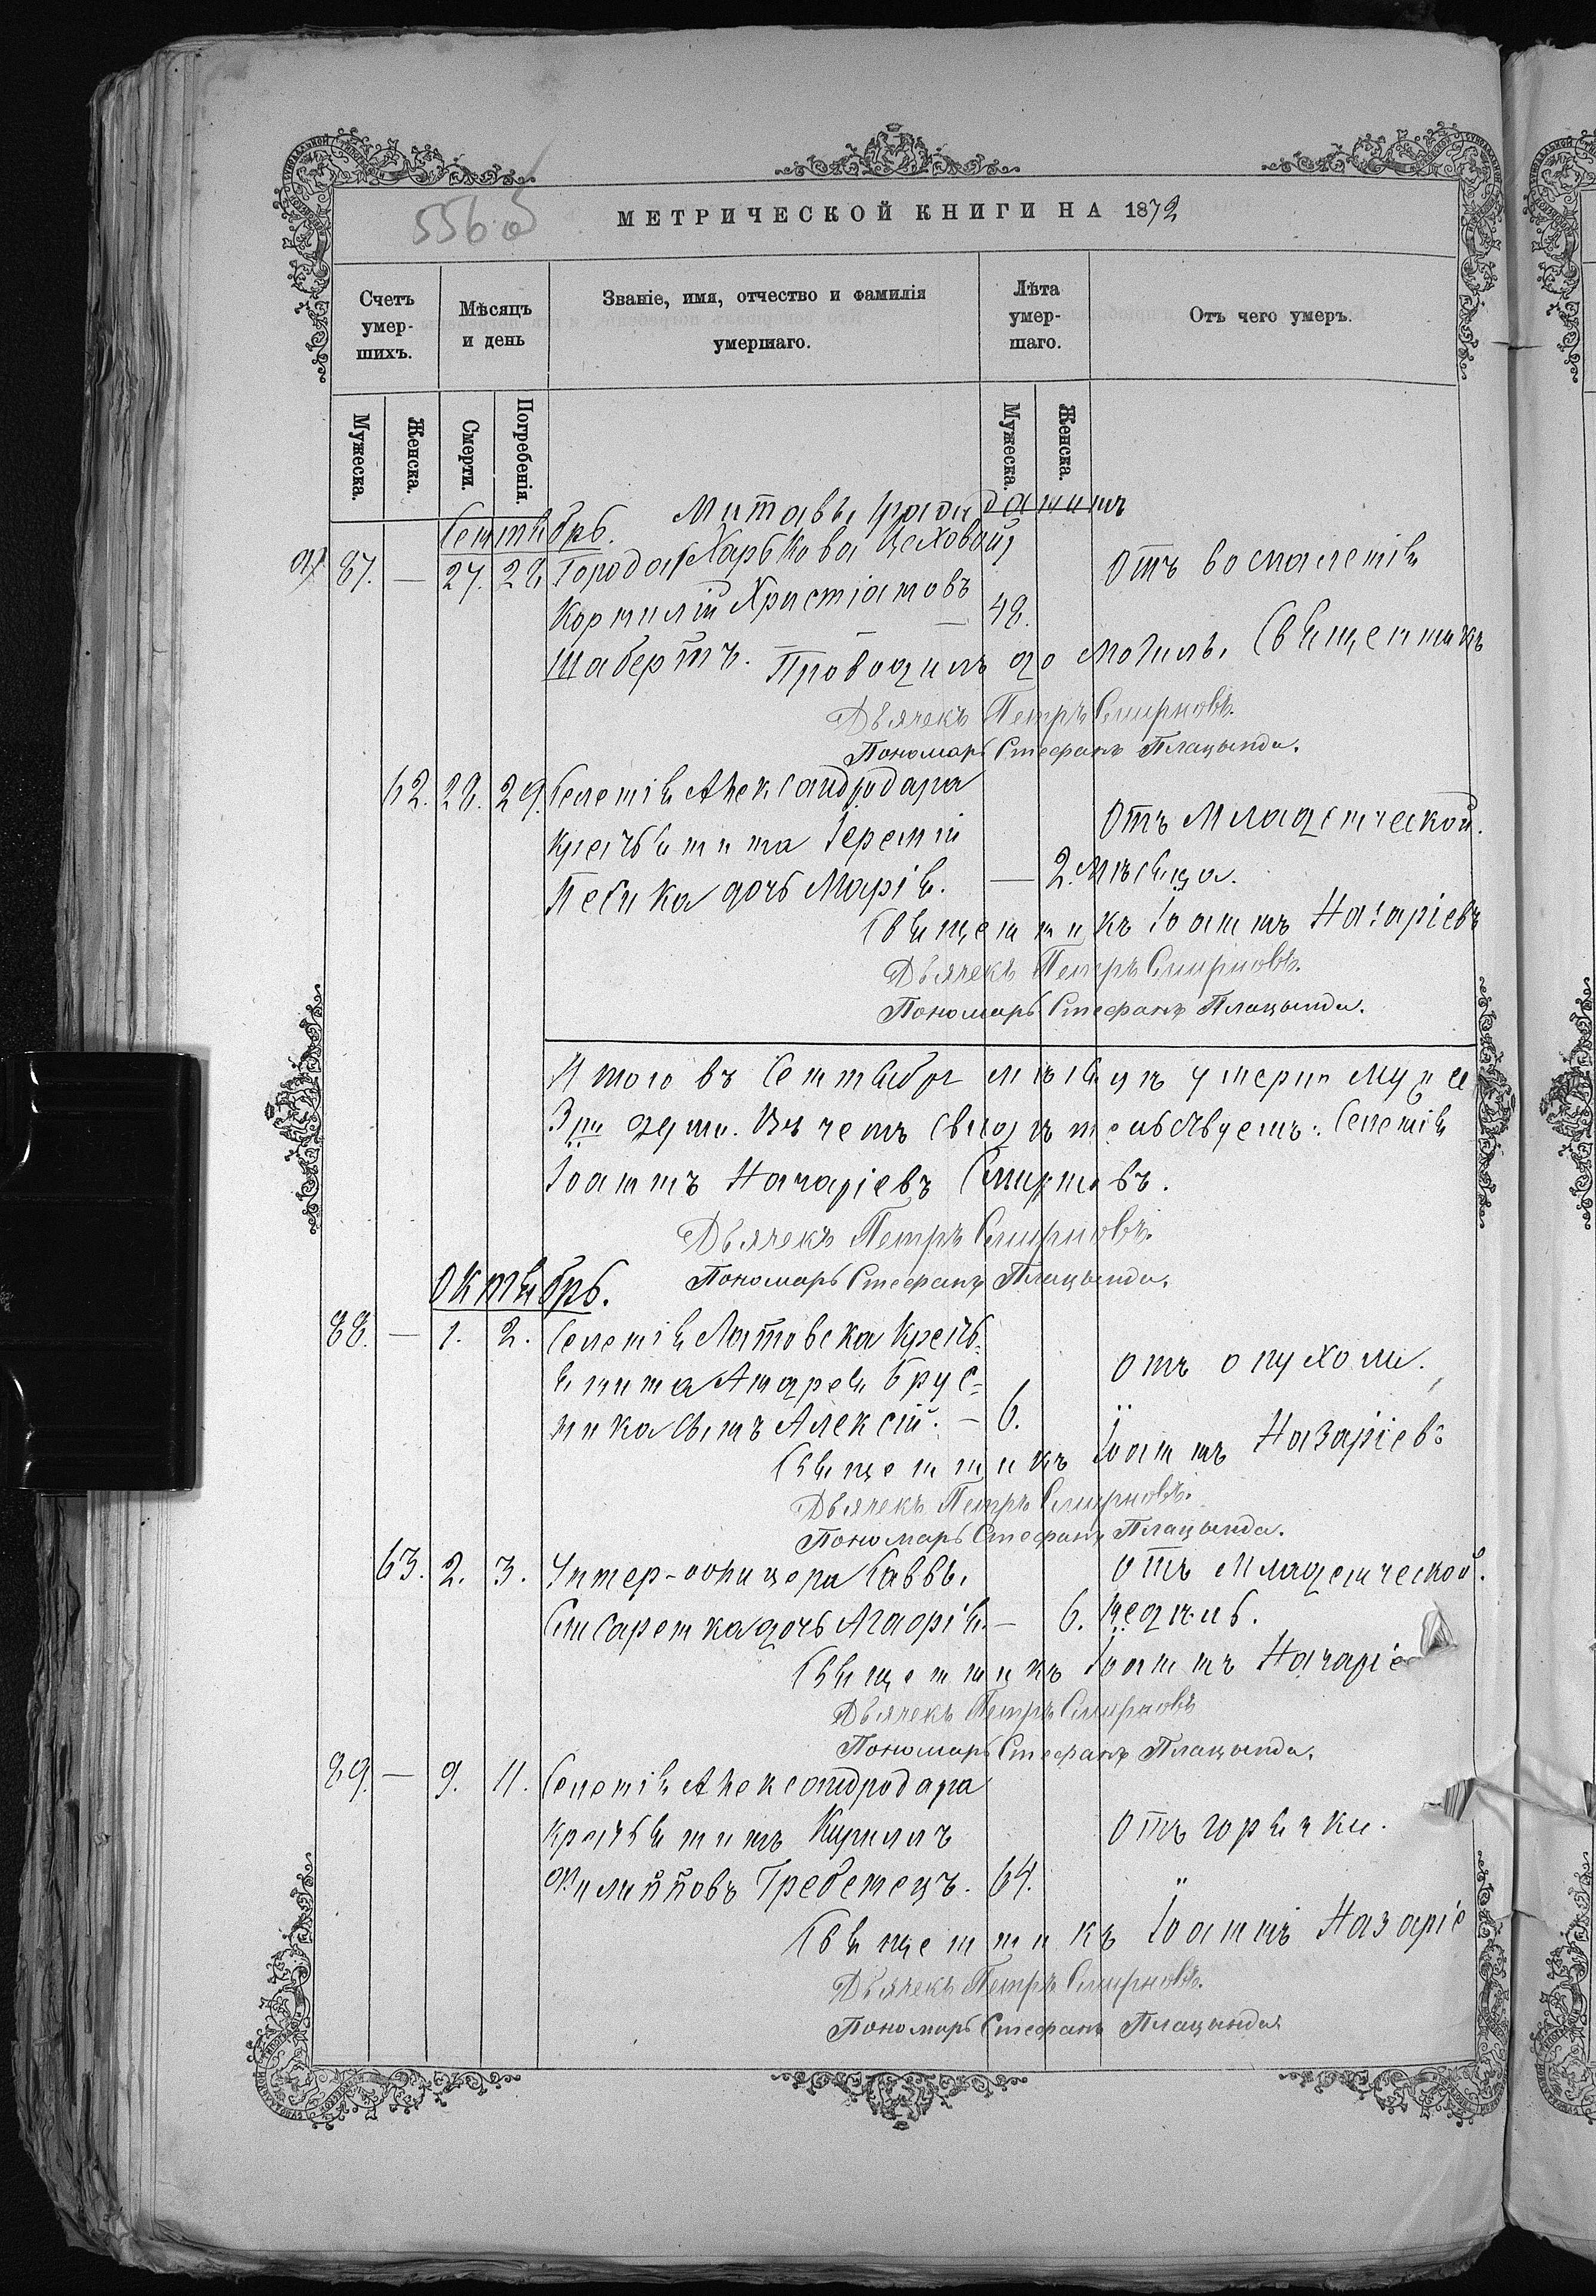 556 об
МЕТРИЧЕСКОЙ КНИГИ НА 1872
Счетъ умер-шихъ.
Мѣсяцъ и день
Званіе, имя, отчество и фамилія умершаго.
Лѣта умер-шаго.
Отъ чего умеръ.
Мужеска. Женска. Смерти. Погребенія. Мужеска. Женска.
Митавы гражданинъ
Сентябрь.
87. — 27. 28. Города Харькова Цеховой, Отъ воспаленія
Корнилій Христіановъ — 48.
Шабертъ. Проводилъ до могилы Священникъ
Дьячекъ Петръ Смирновъ.
Пономарь Стефанъ Плацында.
62. 28. 29. Селенія Александродара
крестьянина Іереміи Отъ младенческой.
дочь Марія. — 2. Мѣсяца.
Священникъ Іоаннъ Назаріевъ
Дьячекъ Петръ Смирновъ.
Пономарь Стефанъ Плацында.
Итого въ Сентябрѣ мѣсяцѣ умерш
душ. Въ чемъ свидѣтельствуетъ:
Іоаннъ Назаріевъ Смирновъ.
Дьячекъ Петръ Смирновъ.
Пономарь Стефанъ Плацында.
Октябрь.
88. — 1. 2. Селенія Латовска кресть-
янина Андрея Брус- отъ опухоли.
ника сынъ Алексій. — 6.
Священникъ Іоаннъ Назаріевъ
Дьячекъ Петръ Смирновъ.
Пономарь Стефанъ Плацында.
63. 2. 3. Унтер-офицера Саввы отъ младенческой.
дочь Агафія. — 6. недѣль.
Священникъ Іоаннъ Назаріе
Дьячекъ Петръ Смирновъ
Пономарь Стефанъ Плацында.
89. — 9. 11. Селенія Александродара
крестьянинъ Кириллъ Отъ горячки.
Филипповъ Гребенецъ. 64.
Священникъ Іоаннъ Назаріе
Дьячекъ Петръ Смирновъ.
Пономарь Стефанъ Плацында.